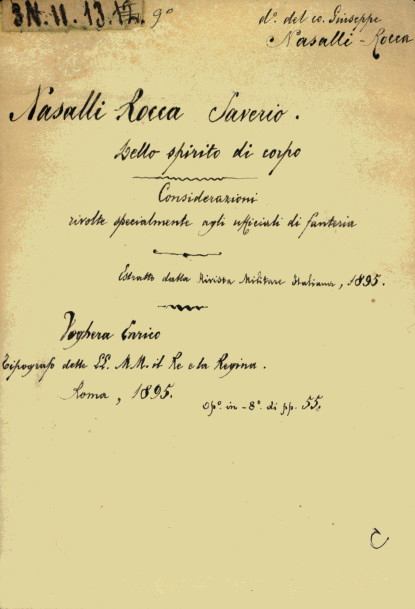 3N.11.13.12. 9º
dº. del co. Giuseppe
Nasalli-Rocca
Nasalli-Rocca Saverio.
Dello spirito di corpo
Considerazioni
rivolte specialmente agli ufficiali di fanteria
Estratto dalla Rivista Militare Italiana, 1895.
Voghera Enrico
Tipografo delle LL. MM. il Re e la Regina.
Roma, 1895.
Opº. in-8º. di pp. 55.
C